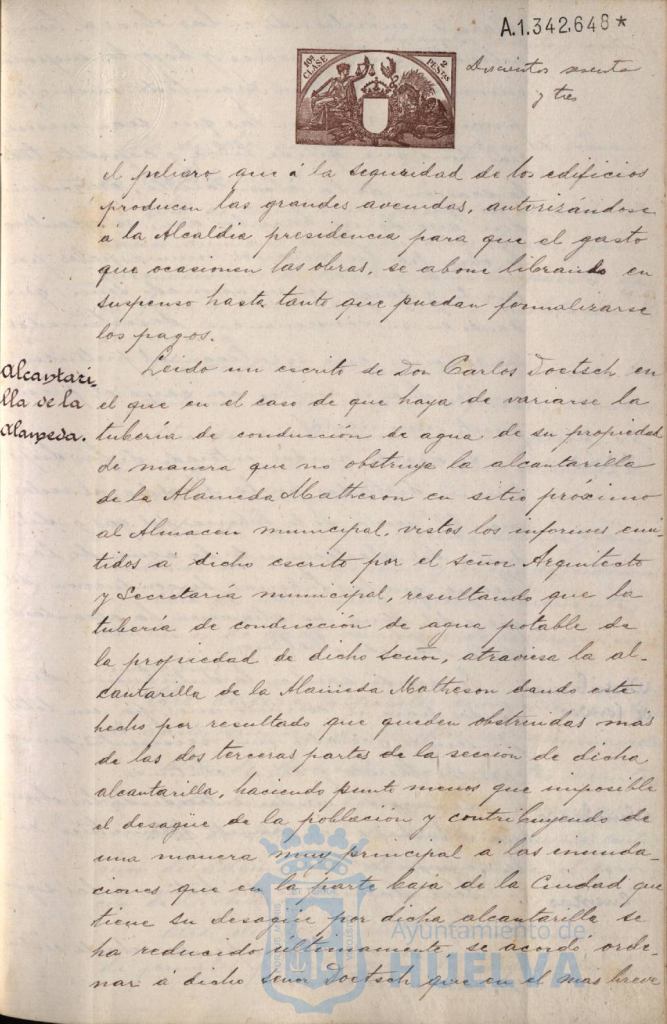 A.1.342.648*
10ª CLASE
2 PESETAS
Doscientos sesenta
y tres
el peligro que á la seguridad de los edificios
producen las grandes avenidas, autorizándose
á la Alcaldia presidencia para que el gasto
que ocasionen las obras, se abone librando en
suspenso hasta tanto que puedan formalizarse
los pagos.
Alcantari-
lla de la
Alameda.
Leido un escrito de Don Carlos Doetsch en
el que en el caso de que haya de variarse la
tubería de conducción de agua de su propiedad
de manera que no obstruya la alcantarilla
de la Alameda Matheson en sitio próximo
al Almacen municipal, vistos los informes emi-
tidos á dicho escrito por el señor Arquitecto
y Secretaría municipal, resultando que la
tubería de conducción de agua potable de
la propiedad de dicho Señor, atraviesa la al-
cantarilla de la Alameda Matheson dando este
hecho por resultado que queden obstruidas más
de las dos terceras partes de la sección de dicha
alcantarilla, haciendo punto menos que imposible
el desagüe de la población y contribuyendo de
una manera muy principal á las inunda-
ciones que en la parte baja de la Ciudad que
tiene su desagüe por dicha alcantarilla se
ha reducido ultimamente, se acordó orde-
nar á dicho Señor Doetsch que en el mas breve
Ayuntamiento de
HUELVA